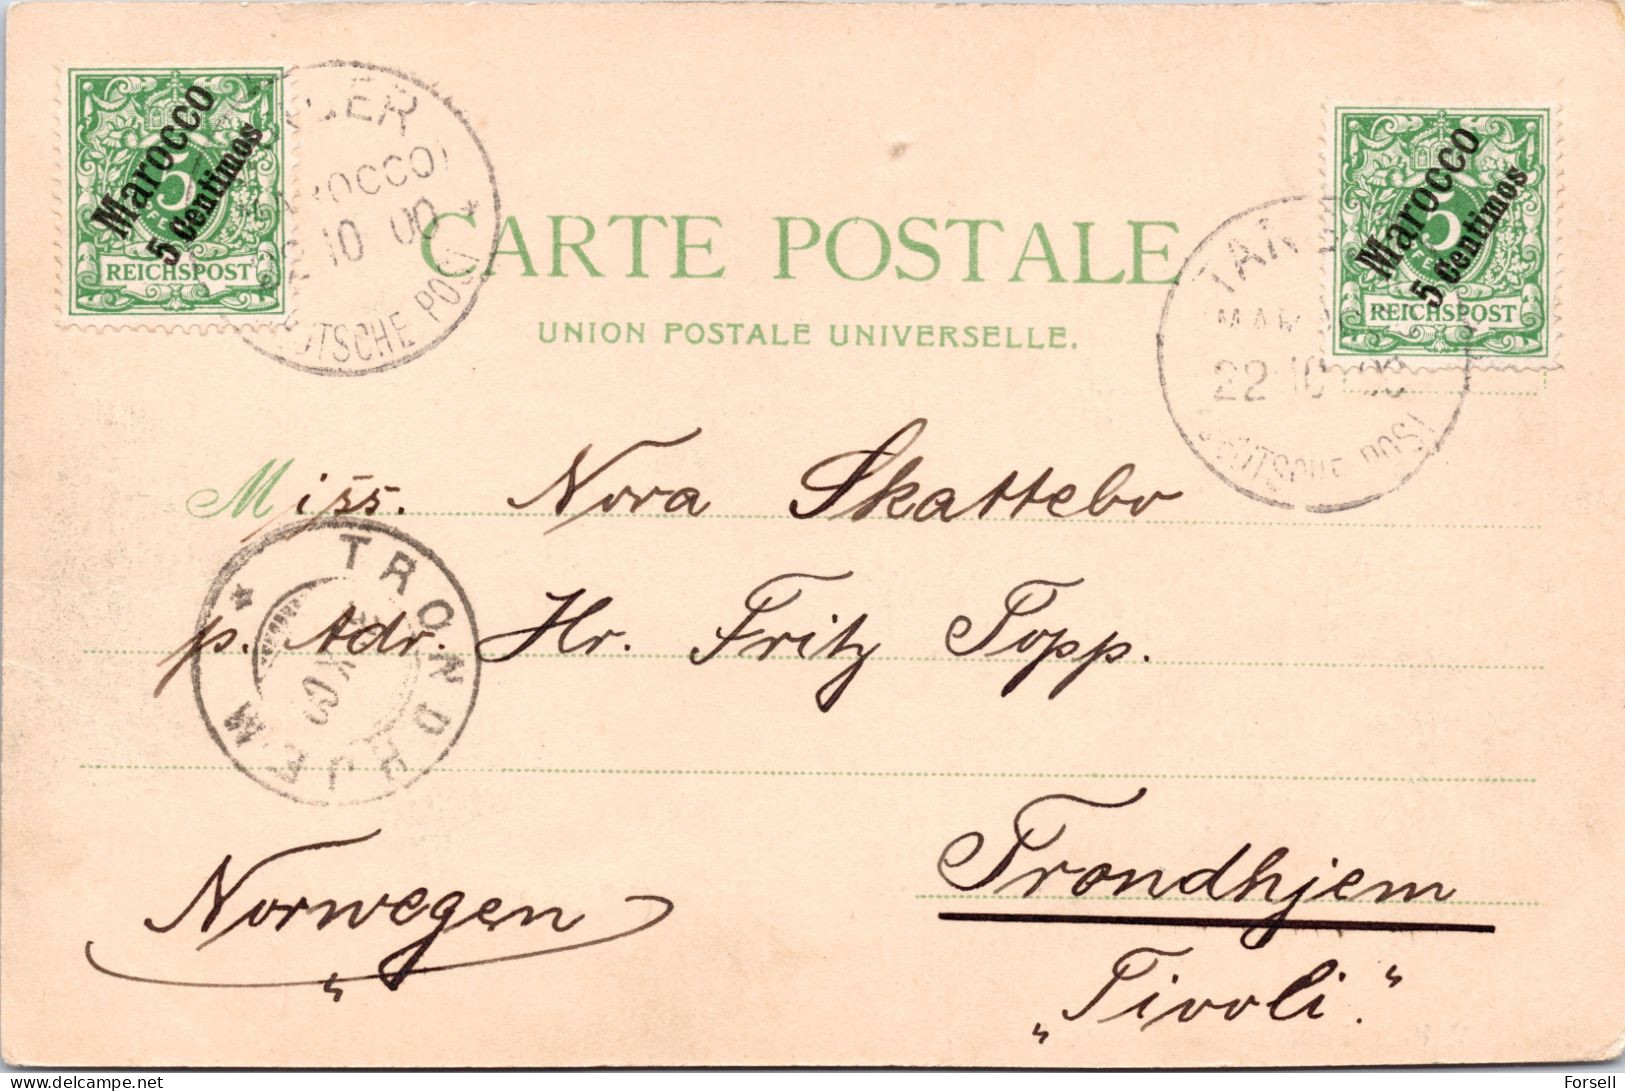 Marocco
5 Centimos
5
REICHSPOST
MAROCCO)
22 10 00
DEUTSCHE POST
Marocco
5 Centimos
5
REICHSPOST
TAN
MAR
22 10 00
DEUTSCHE POST
CARTE POSTALE
UNION POSTALE UNIVERSELLE.
Miss. Nora Skattebo
p. Adr. Hr. Fritz Topp.
TRONDHJEM
Trondhjem
Norwegen
„Tivoli."
Forsell